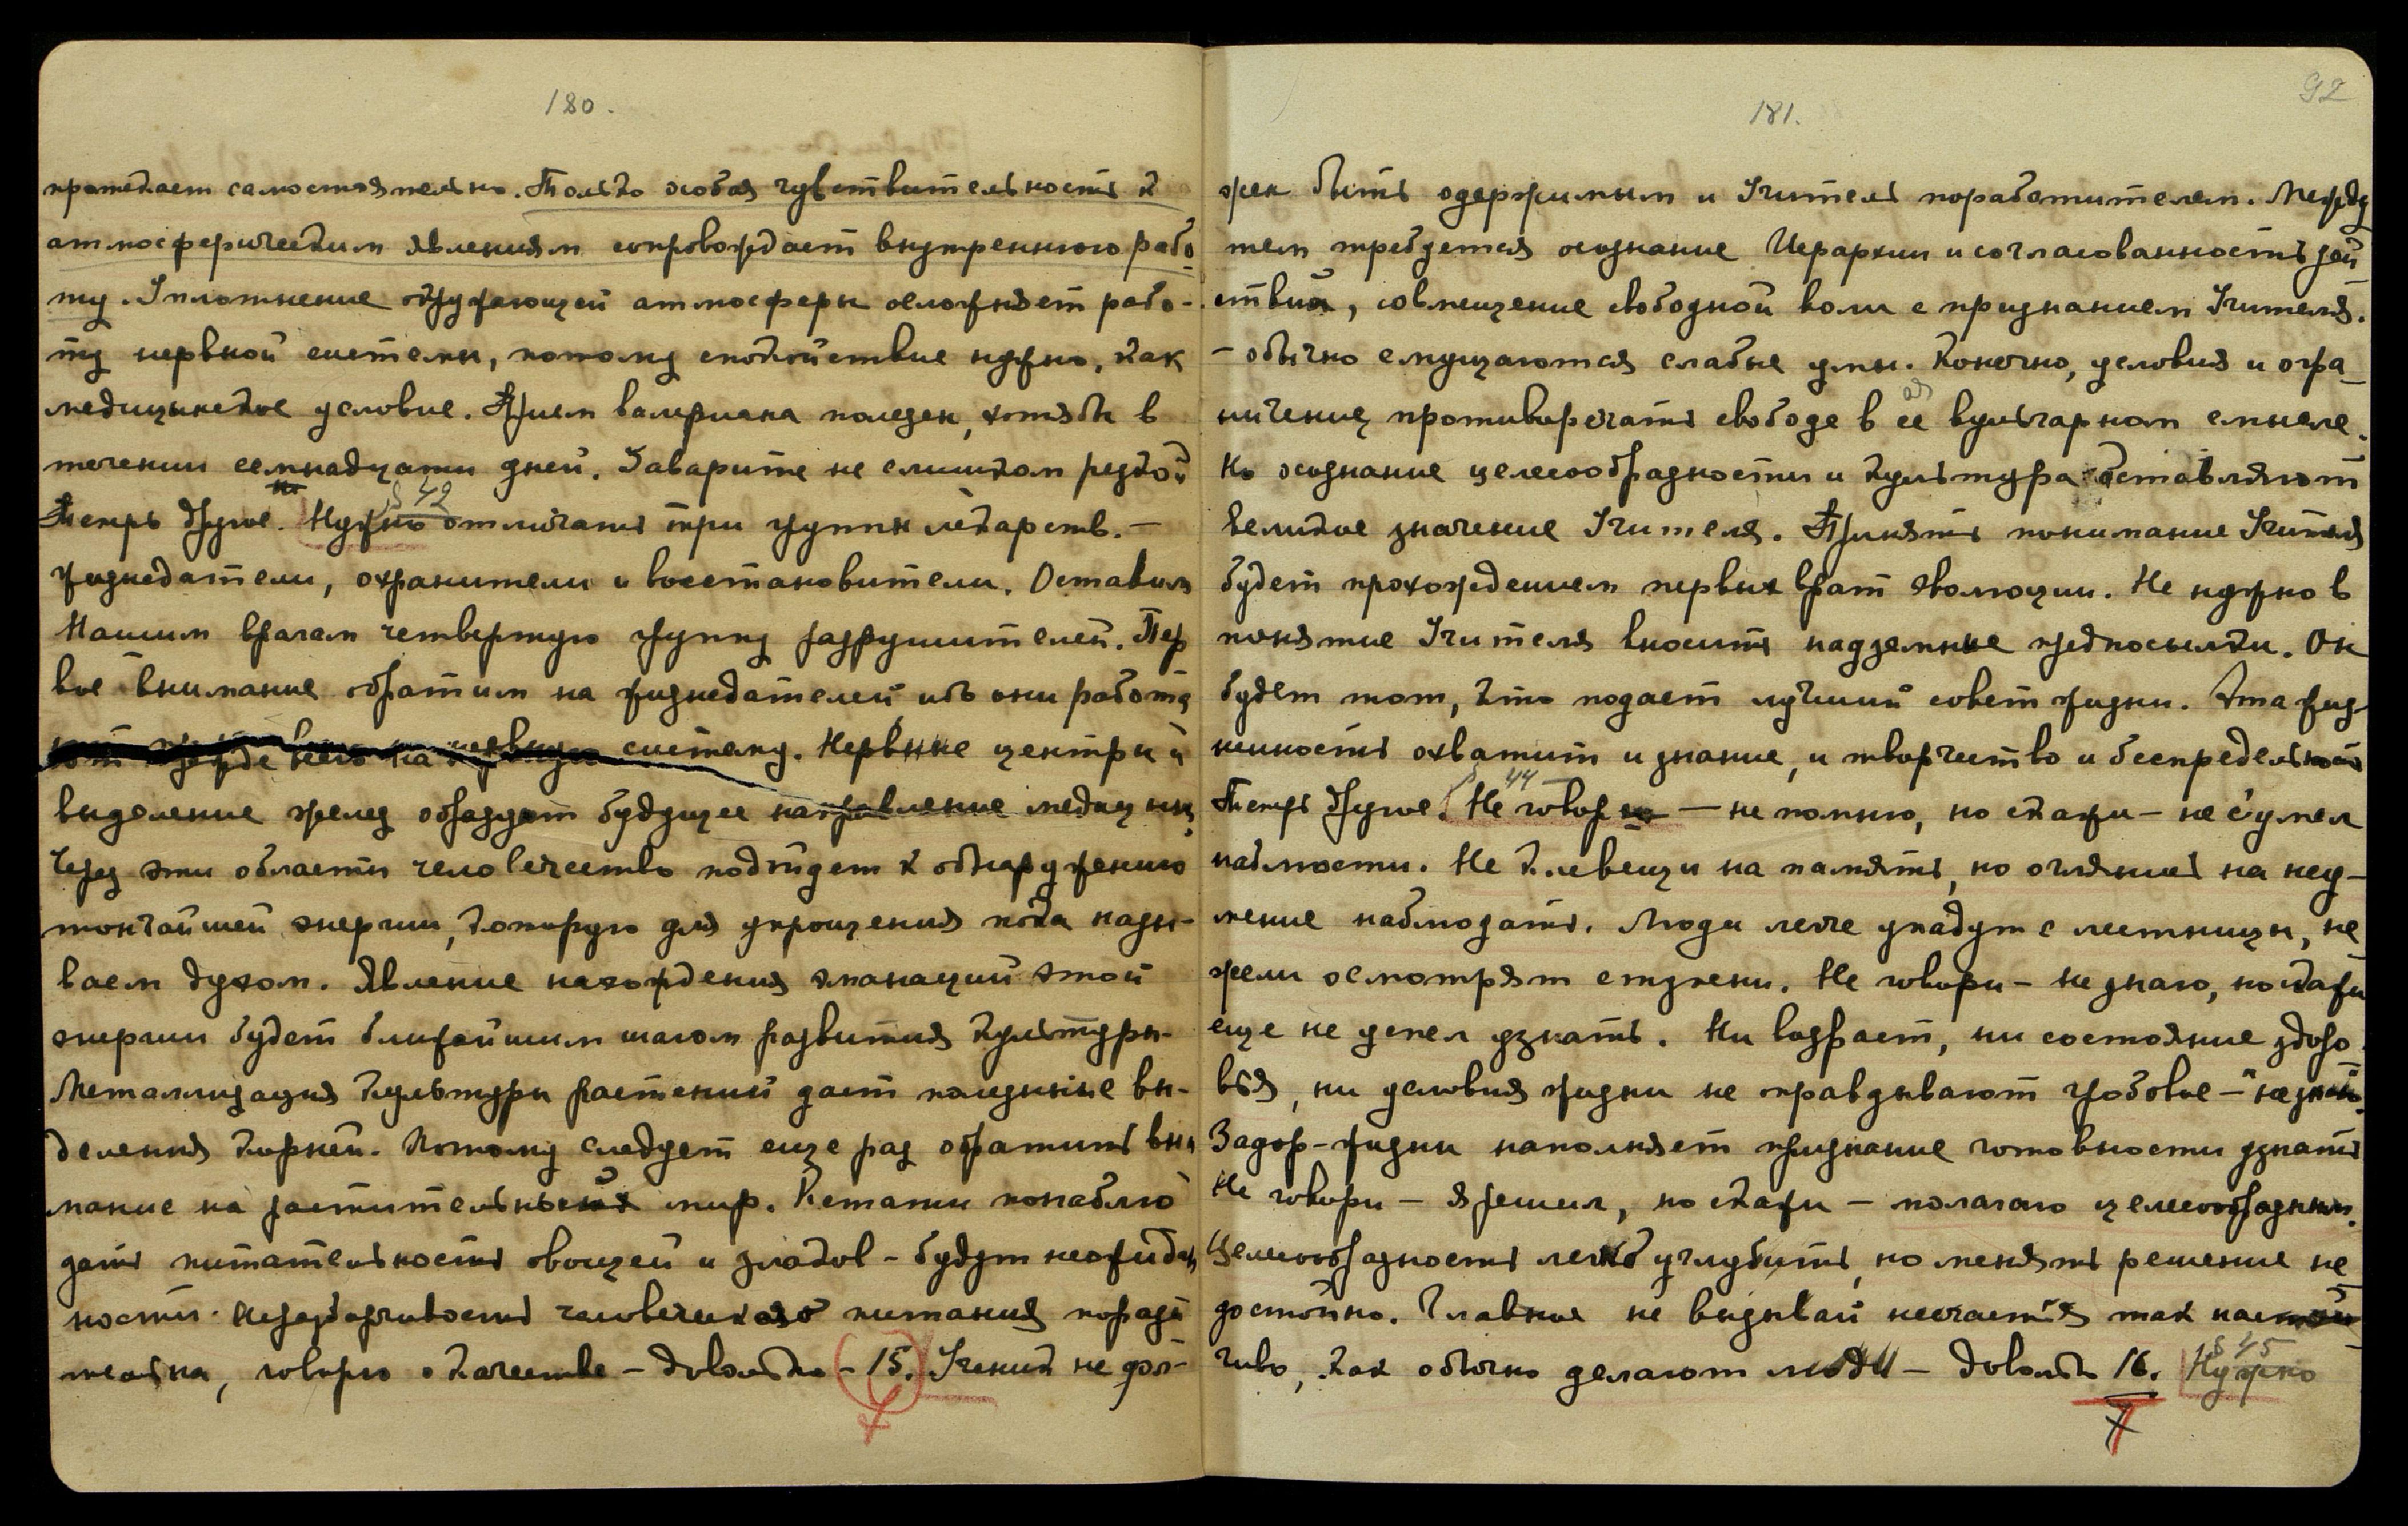 180.
протекает самостоятельно. Только особая чувствительность к
атмосферическим явлениям сопровождает внутреннюю рабо
ту. Уплотнение окружающей атмосферы осложняет рабо-
ту нервной системы, потому спокойствие нужно, как
медицинское условие. Прием валериана полезен, хотя бы в
течении семнадцати дней. Заварите не слишком редкой
Теперь другое. § 42 Нужно отличать три группы лекарств. –
жизнедатели, охранители и восстановители. Оставим
Нашим врагам четвертую группу разрушителей. Пер
вое внимание обратим на жизнедателей ибо они работа
ют прежде всего на нервную систему. Нервные центры и
выделение желез образуют будущее направление медицины,
Через эти области человечество подойдет к обнаружению
тончайшей энергии, которую для упрощения пока назы-
ваем духом. Явление нахождения эманаций этой
энергии будет ближайшим шагом развития культуры.
Металлизация культуры растений дает полезные вы-
деления корней. Потому следует еще раз обратить вни
мание на растительный мир. Кстати понаблю
дать питательность овощей и злаков – будут неожидан
ности. Неразборчивость человеческого питания порази
тельна, говорю о качестве – довольно – 15. Ученик не дол-
92
181.
жен быть одержимым и Учитель поработителем. Между
тем требуется осознание Иерархии и согласованность дей
ствий, совмещение свободной воли с признанием Учителя.
– обычно смущаются слабые умы. Конечно, условия и огра_
ничение противоречать свободе в ее вульгарном смысле.
Но осознание целесообразности и культура оставляют
великое значение Учителя. Принять понимание Учителя
будет прохождением первых врат эволюции. Не нужно в
понятие Учителя вносить надземные предпосылки. Он
будет тот, кто подает лучший совет жизни. Эта жиз-
ненность охватит и знание, и творчество и беспредельность
Теперь другое. § 44 Не говори – не помню, но скажи – не сумел
наблюсти. Не клевещи на память, но оглянись на неу-
мение наблюдать. Люди легче упадут с лестницы, не
жели осмотрят ступени. Не говори – не знаю, но скажи
еще не успел узнать. Ни возраст, ни состояние здоро
вья, ни условия жизни не оправдывают гробовое – "не знаю".
Задор-жизни наполняет признание готовности узнать
Не говори – я решил, но скажи – полагаю целесообразным.
Целесообразность легко углубить, но менять решение не
достойно. Главное не вызывай несчастья так настой
чиво, как обычно делают люди – довольно 16. § 45 Нужно